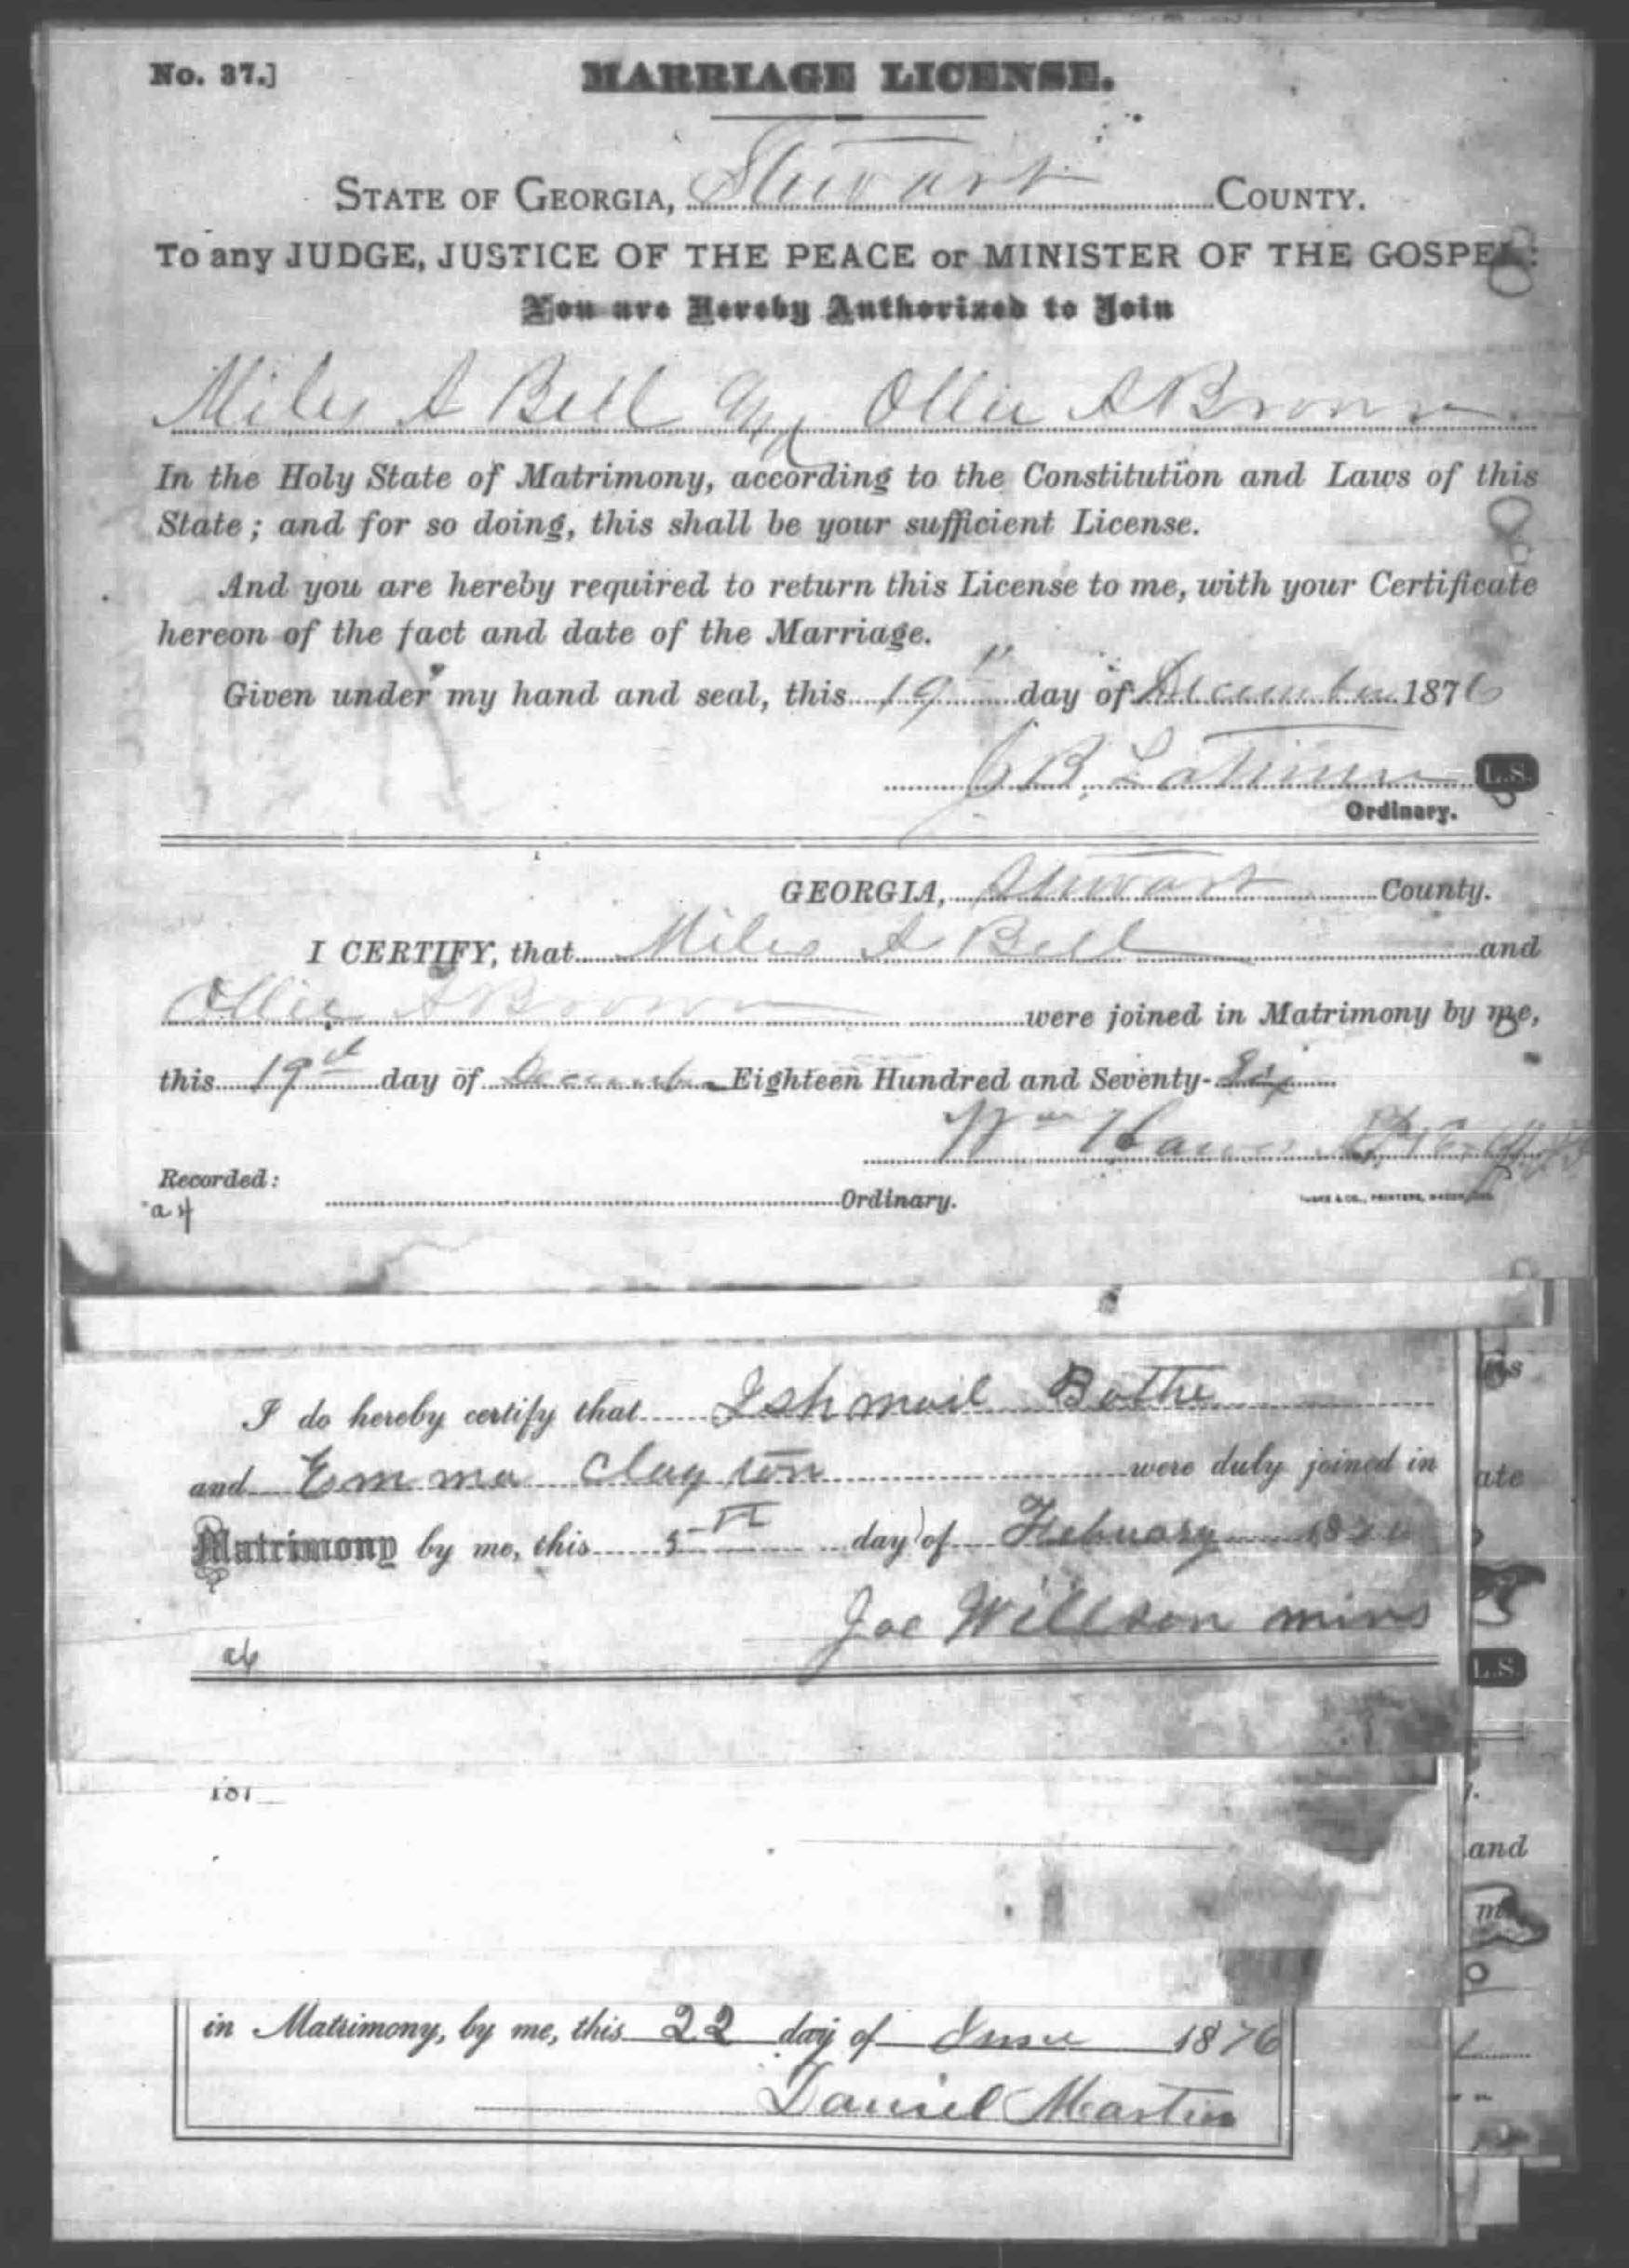 No. 37.]
MARRIAGE LICENSE.
STATE OF GEORGIA, Stewart COUNTY.
To any JUDGE, JUSTICE OF THE PEACE or MINISTER OF THE GOSPEL:
You are Hereby Authorized to Join
Miles A Bell and Ollie A Brown
In the Holy State of Matrimony, according to the Constitution and Laws of this
State; and for so doing, this shall be your sufficient License.
And you are hereby required to return this License to me, with your Certificate
hereon of the fact and date of the Marriage.
Given under my hand and seal, this 19th day of December 1876
J B Latimer L.S.
Ordinary.
GEORGIA, Stewart County.
I CERTIFY, that Miles A Bell and
Ollie A Brown were joined in Matrimony by me,
this 19th day of December Eighteen Hundred and Seventy-Six
Wm
Recorded:
Ordinary.
& CO., PRINTERS,
I do hereby certify that Ishmael Bothe
and Emma Clayton were duly joined in
Matrimony by me, this 5th day of Febuary 187
Joe Willson mins
187
in Matrimony, by me, this 22 day of June 1876
Daniel Martin
ate
L.S.
and